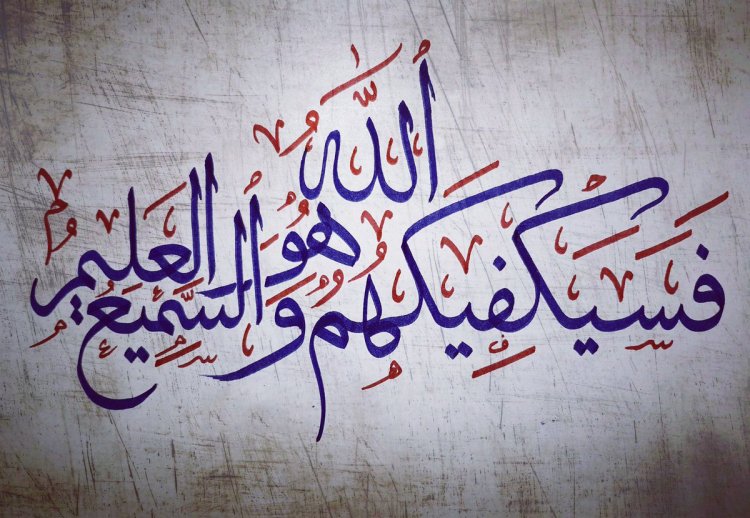 فَسَيَكْفِيكَهُمُ اللَّهُ وَهُوَ السَّمِيعُ الْعَلِيمُ